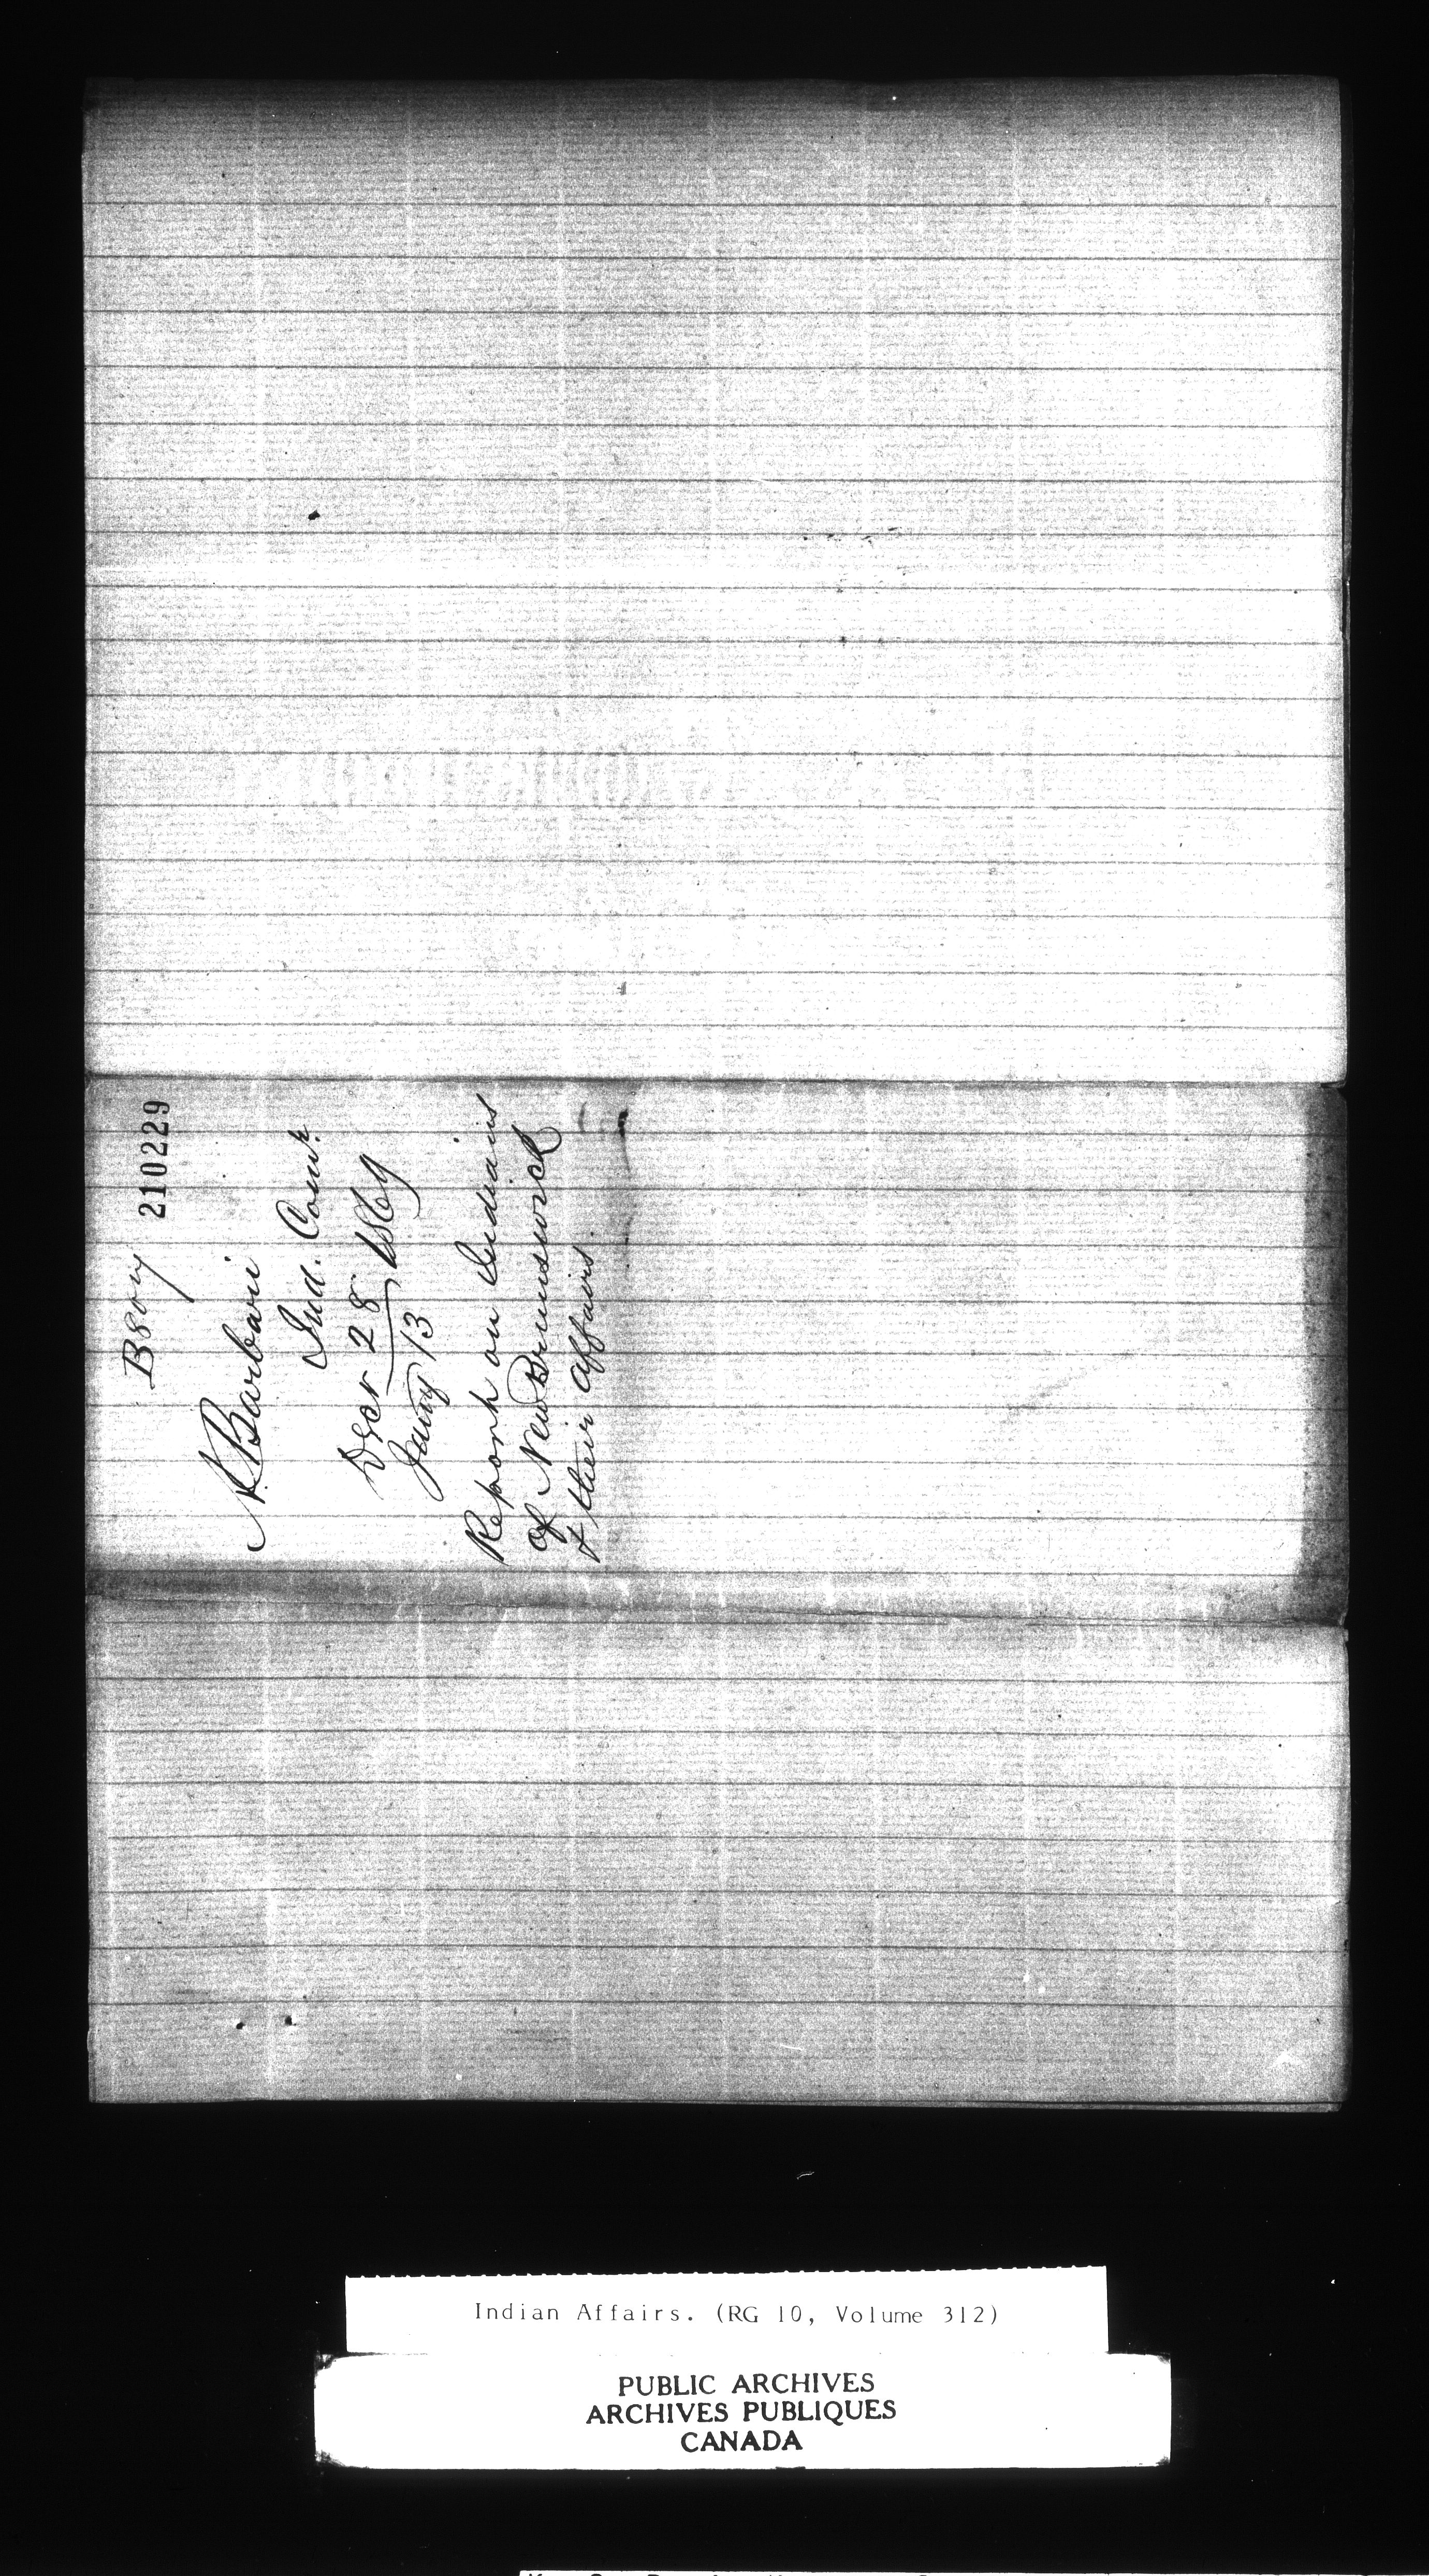 210229
N. Barbarie
Ind. Comr.
Decr 28
Jany 13
Report on Indians
of New Brunswick
& their affairs.
Indian Affairs. (RG 10, Volume 312)
PUBLIC ARCHIVES
ARCHIVES PUBLIQUES
CANADA